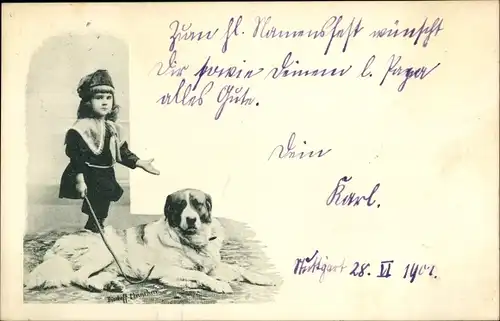 Zum hl. Namensfest wünscht
Dir sowie Deinem l. Papa
alles Gute.
Dein
Karl.
Stuttgart 28. VI 1901.